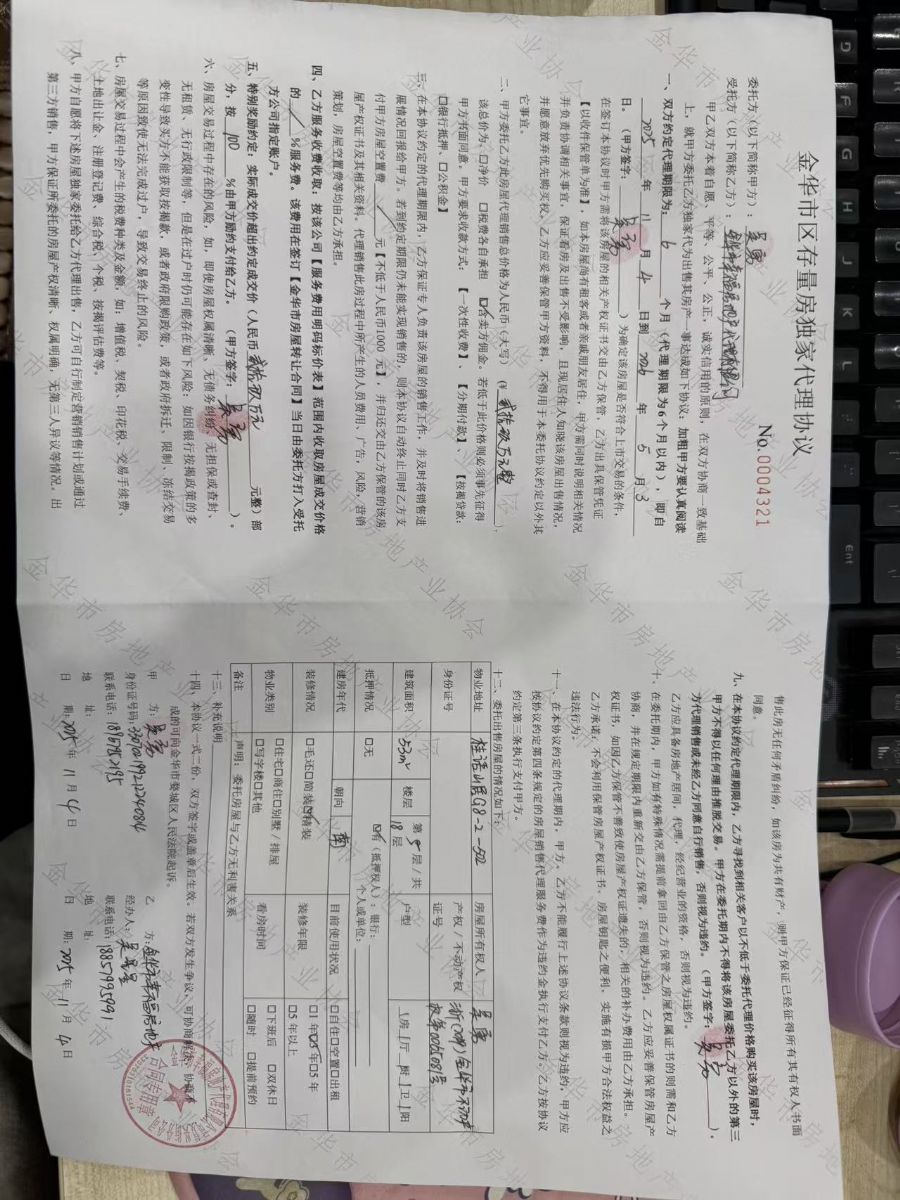 金华市区存量房独家代理协议
No.0004321
委托方（以下简称甲方）：吴勇
受托方（以下简称乙方）：
甲乙双方本着自愿、平等、公平、公正、诚实信用的原则，在双方协商一致基础
上，就甲方委托乙方独家代为出售其房产一事达成如下协议：加粗甲方要认真阅读
一、双方约定代理期限为：6 个月（代理期限为6个月以内），即自
2025 年 11 月 4 日到 2026 年 5 月 3
日。（甲方签字：吴勇）为确定该房屋是否符合上市交易的条件，
在签订本协议时甲方需将该房屋的相关产权证书交由乙方保管，乙方出具保管托证
【以收件保管单为准】，如本房屋尚有租客或者亲戚朋友居住，甲方需同时说明相关情况
并负责协调相关事宜，保证看房及出售不受影响，且现居住人知晓该房屋出售情况，
并愿意放弃优先购买权。乙方应妥善保管甲方资料，不得用于本委托协议约定以外其
它事宜。
二、甲方委托乙方此房屋代理销售总价格为人民币（大写）
该总价为：□净价 □税费各自承担 含卖方佣金。若低于此价格则必须事先征得
甲方书面同意，甲方要求收款方式：【一次性收费】、【分期付款】、【按揭贷款：
□银行抵押，□公积金】
三、在本协议约定的代理期限内，乙方保证专人负责该房屋的销售工作，并及时将销售进
展情况回报给甲方。若到约定期限仍未能实现销售的，则本协议自动终止同时乙方支
付甲方房屋空置费 ／ 元【不低于人民币1000元】，并归还交由乙方保管的该房
屋产权证书及其相关资料。代理销售此房过程中所产生的人员费用、广告，风险，营销
策划，房屋空置费等均由乙方承担。
四、乙方服务收费收取，按该公司【服务费用明码标价表】范围内收取房屋成交价格
的 ／ %服务费。该费用在签订【金华市房屋转让合同】当日由委托方打入受托
方公司指定账户。
五、特别奖励约定：实际成交价超出约定成交价（人民币 元整）部
分，按 100 %由甲方励约支付给乙方。（甲方签字：吴勇）。
六、房屋交易过程中存在的风险，如，即使房屋权属清晰、无债务纠纷、无担保或查封、
无租赁、无行政限制等，但是在过户时仍可能存在如下风险：如因银行按揭政策的多
变性导致买方不能获取按揭款，或者政府限购政策，或者政府拆迁、限制、冻结交易
等原因致使无法完成过户，导致交易终止的风险。
七、房屋交易过程中会产生的税费种类及金额，如，增值税、契税、印花税、交易手续费、
土地出让金、注册登记费、综合税、个税、按揭评估费等。
八、甲方自愿将下述房屋独家委托给乙方代理出售，乙方可自行制定营销销售计划或通过
第三方销售，甲方保证所委托的房屋产权清晰、权属明确，无第三人异议等情况。出
售此房无任何矛盾纠纷，如该房为共有财产，则甲方保证已经征得所有其有权人书面
同意。
九、在本协议约定代理期限内，乙方寻找到相关客户以不低于委托代理价格购买该房屋时，
甲方不得以任何理由推脱交易。甲方在委托期内不得将该房屋委托乙方以外的第三
方代理销售或未经乙方同意自行销售，否则视为违约。（甲方签字：吴勇）。
乙方应具备房地产居间，代理，经纪营业的资格，否则视为违约。
十、在委托期内，甲方如有特殊情况需提前拿回由乙方保管之房屋权属证书的则需和乙方
协商，并在规定期限内重新交由乙方保管，否则视为违约。乙方应妥善保管房屋产
权证书，如因乙方保管不善致使房屋产权证遗失的，相关的补办费用由乙方承担。
乙方承诺，不会利用保管房屋产权证书、房屋钥匙之便利，实施有损甲方合法权益之
违法行为。
十一、在本协议约定的代理期内，甲方、乙方不能履行上述协议条款则视为违约，甲方应
按协议约定第四条规定的房屋销售代理服务费作为违约金执行支付乙方、乙方按协议
约定第三条执行支付甲方。
十二、委托出售房屋的情况如下：
物业地址 G8-2-502 房屋所有权人 吴勇
身份证号 产权／不动产权证号
建筑面积 53m² 楼层 第5层／共18层 户型 【房【厅【厨【卫【阳
抵押情况 □无 有（抵押权人）：银行： 个人或单位：
建房年代 朝向 目前使用状况 □自住□空置□出租
装修情况 □毛还□简装 精装 装修年限 □1年 5年 □5年以上
物业类别 □住宅□商住□别墅／排屋 □写字楼□其他 看房时间 □下班后 □双休日 □随时 □提前预约
备注 声明：委托房屋与乙方无利害关系
十三、补充说明
十四、本协议一式二份，双方签字或盖章后生效，若双方发生争议，可协商解决，协商不
成的可向金华市婺城区人民法院起诉。
甲 方：吴勇 乙 方：
身份证号码： 经办人：
联系电话： 联系电话：18857995991
地 址： 地 址：
日 期：2025年 11 月 4 日 日 期：2025年 11 月 4 日
金华市房地产业协会